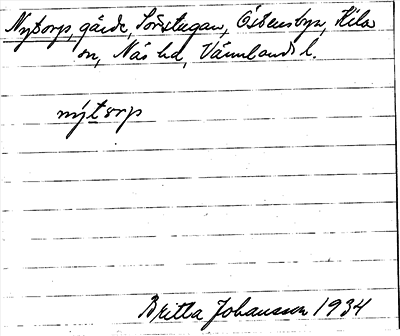 Nytorps gärde, Torstugan, Östensbyn, Kila
sn, Näs hd, Värmlands l.
nýtorp
Britta Johansson 1934